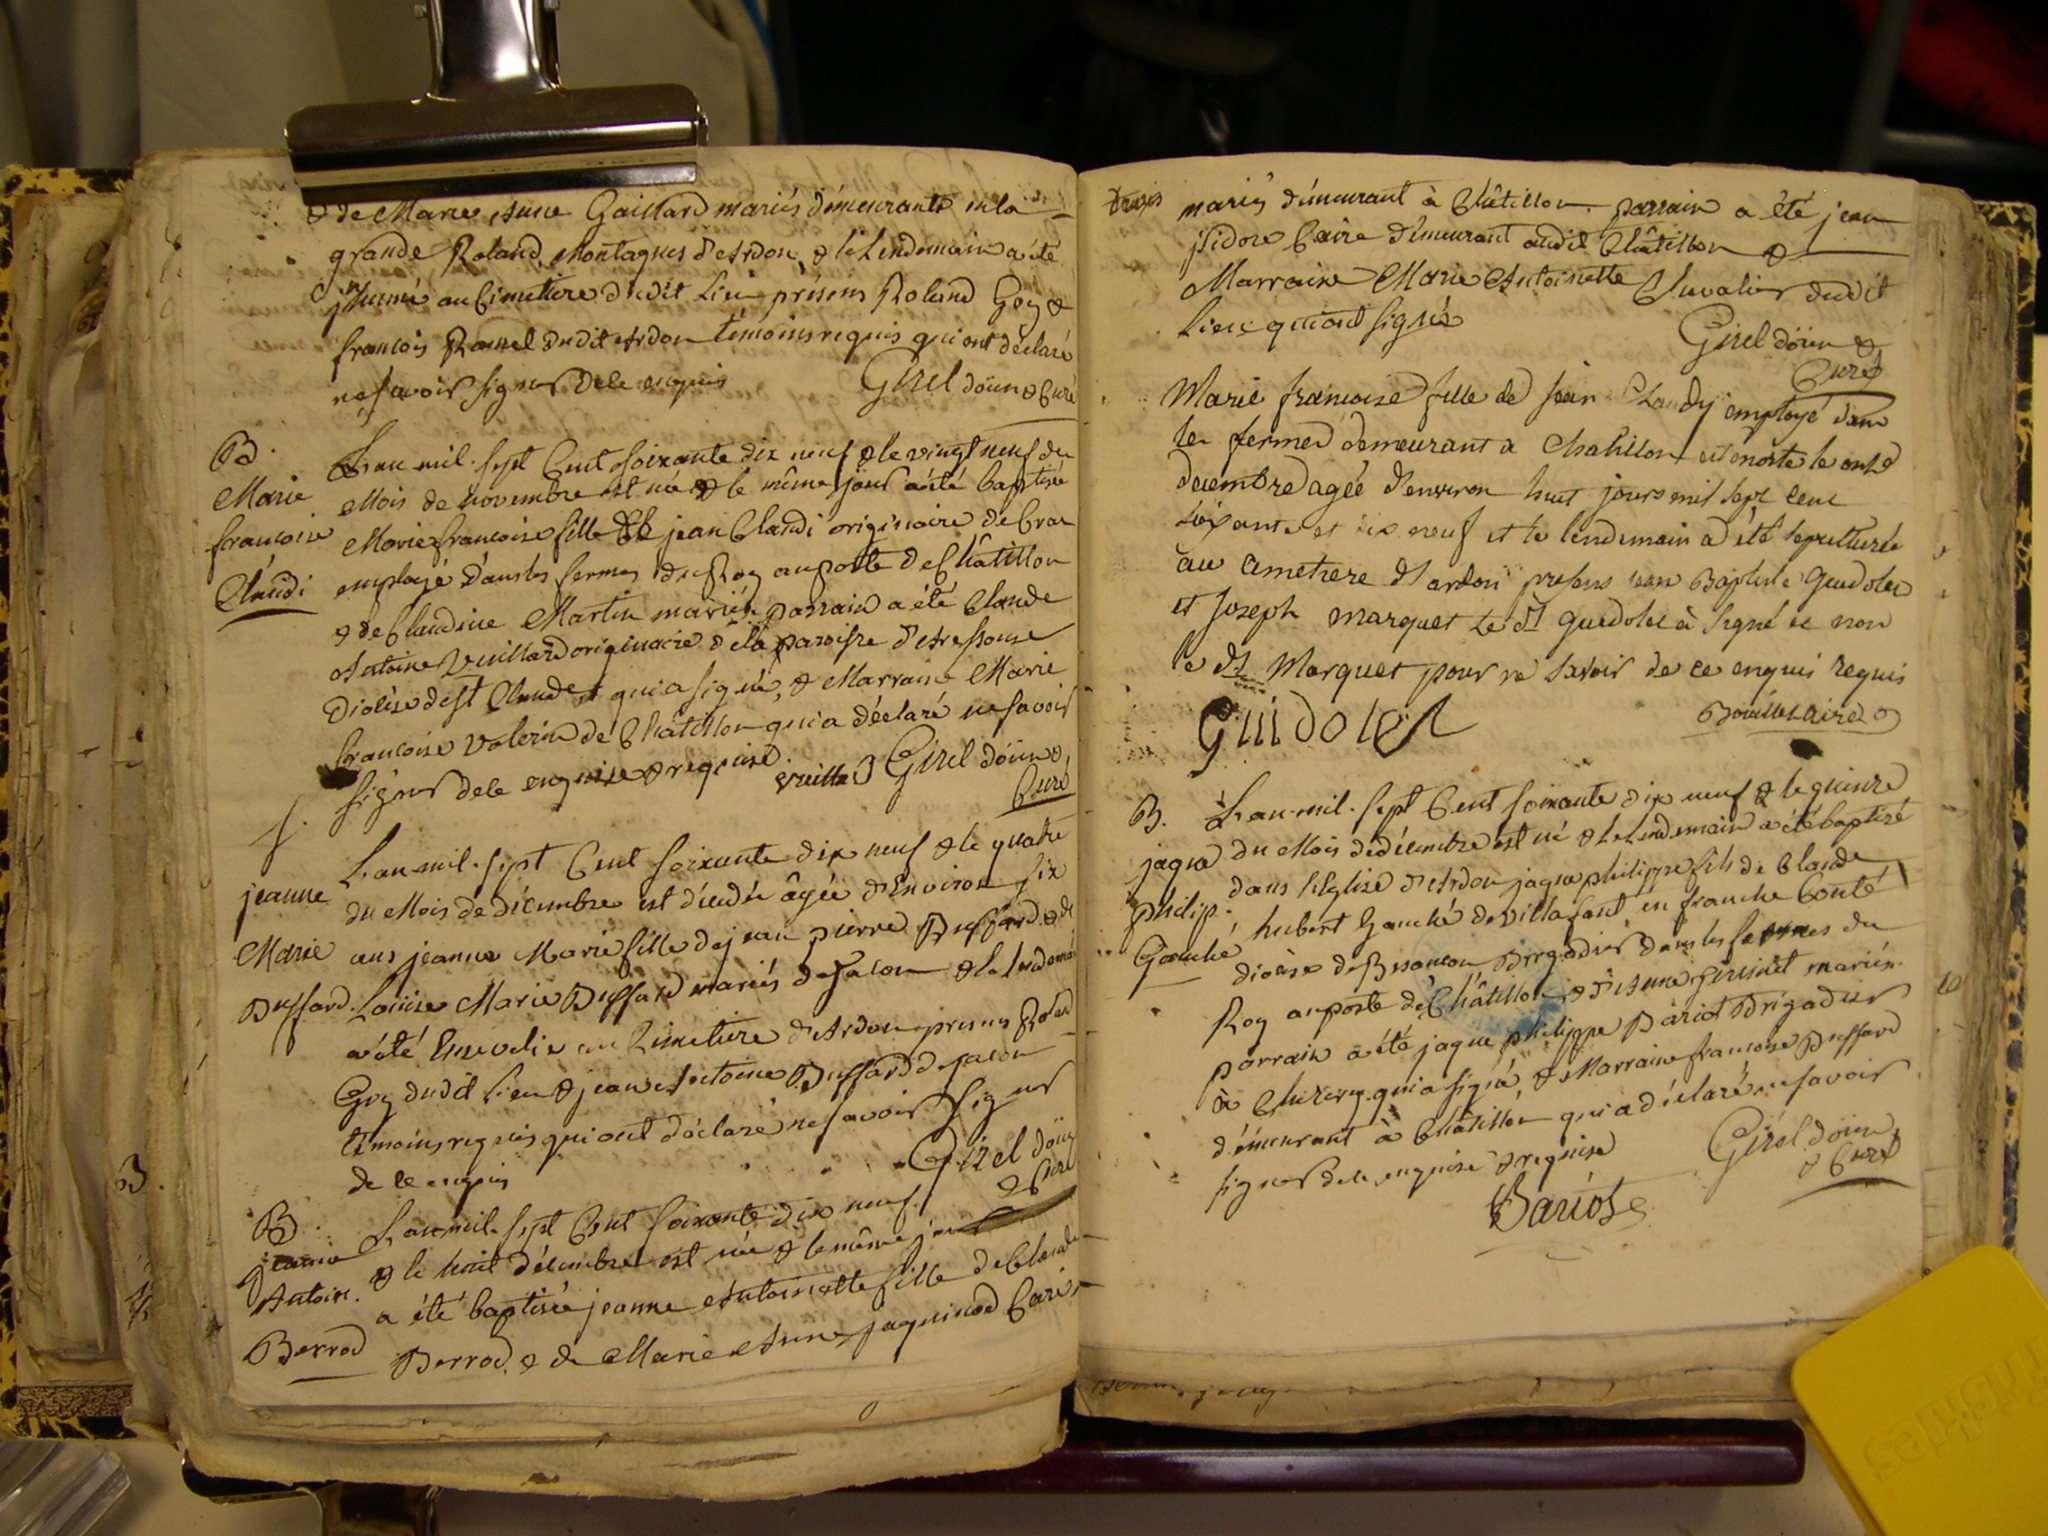 & de Marie Anne Gaillard mariés démeurants en la
grande Roland, Montagnes d'Ardon, & le Lendemain a été
inhumé au Cimetiere dudit Lieu présens Roland Goy &
françois dudit Ardon témoins requis qui ont déclaré
ne savoir signer de ce enquis Girel doïen & Curé
B.
Marie
francoise
Claudi
L'an mil-sept Cent soixante dix neuf & le vingt neuf du
Mois de novembre est née & le même jour a été baptisée
Marie francoise fille de jean Claudi originaire de
employé dans les fermes du Roy au poste de Châtillon
& de Claudine Martin mariés. parrain a été Claude
Antoine Vuillard originaire de la paroisse
Diocèse de St Claude & qui a signé, & Marraine Marie
francoise de Châtillon qui a déclaré ne savoir
signer de ce enquise & requise. Vuillar Girel doïen &
Curé
S.
jeanne
Marie
Buffard
L'an mil-sept Cent soixante dix neuf & le quatre
du Mois de décembre est décédée âgée d'Environ six
ans jeanne Marie fille de jean pierre Buffard & de
Louise Marie Buffard mariés de & le Lendemain
a été Ensevelie au Cimetiere d'Ardon presens Roland
Goy dudit Lieu & jean Antoine Buffard de
témoins requis qui ont déclaré ne savoir signer
de ce enquis Girel doïen
& Curé
B.
jeanne
Antoin.
Berrod
L'an mil-sept Cent soixante dix neuf
& le huit décembre est née & le même jour
a été baptisée jeanne Antoinette fille de Claude
Berrod, & de Marie Anne jaquinod
mariés démeurant à Châtillon. parrain a été jean
jsidore démeurant audit Châtillon &
Marraine Marie Antoinette Chevalier dudit
Lieu qui ont signés
Girel doïen &
Curé
Marie francoise fille de jean Claudy employé dans
les fermes demeurant a Chatillon est morte le onze
decembre agée d'environ huit jours mil sept cent
soixante et dix neuf et le lendemain a été sepulturée
au cimetiere d'ardon presens jean Baptiste Guidolet
et Joseph marquet Le dt guidolet à signé et non
le dt Marquet pour ne savoir de ce enquis requis
Guidolet
B.
jaque
philip.
Gauché
L'an-mil-sept Cent soixante dix neuf & le quinze
du Mois de décembre est né & le Lendemain a été baptisé
dans l'Eglise d'Ardon jaque philippe fils de Claude
hubert Gauché de villafant en franche Conté
diocèse de Besancon Brigadier dans les fermes du
Roy au poste de Châtillon & d'Anne mariés.
parrain a été jaque philippe Bariot Brigadier
à Chezery qui a signé, & Marraine francoise Buffard
démeurant à Châtillon qui a déclaré ne savoir
signer de ce enquise & requise Girel doïen
& Curé
Bariot